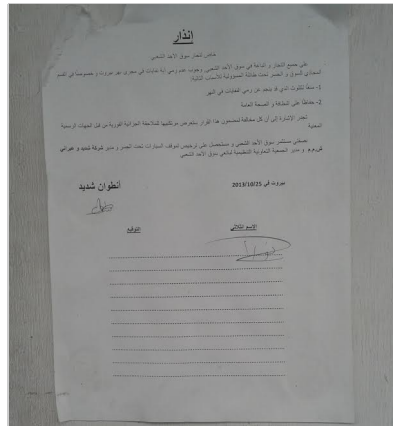 إنذار
خاص لتجار سوق الأحد الشعبي
على جميع التجار و الباعة في سوق الأحد الشعبي وجوب عدم رمي أية نفايات في مجرى نهر بيروت وخصوصاً في القسم
المحاذي للسوق و الجسر تحت طائلة المسؤولية للأسباب التالية:
1- منعاً للتلوث الذي قد ينتج عن رمي النفايات في النهر
2- حفاظاً على النظافة و الصحة العامة
تجدر الإشارة إلى أن كل مخالفة لمضمون هذا القرار ستعرض مرتكبها للملاحقة الجزائية الفورية من قبل الجهات الرسمية
المعنية
بصفتي مستثمر سوق الأحد الشعبي و مستحصل على ترخيص لموقف السيارات تحت الجسر و مدير شركة شديد و
ش.م.م و مدير الجمعية التعاونية التنظيمية لبائعي سوق الأحد الشعبي
بيروت في 2013/10/25
أنطوان شديد
الاسم الثلاثي
التوقيع